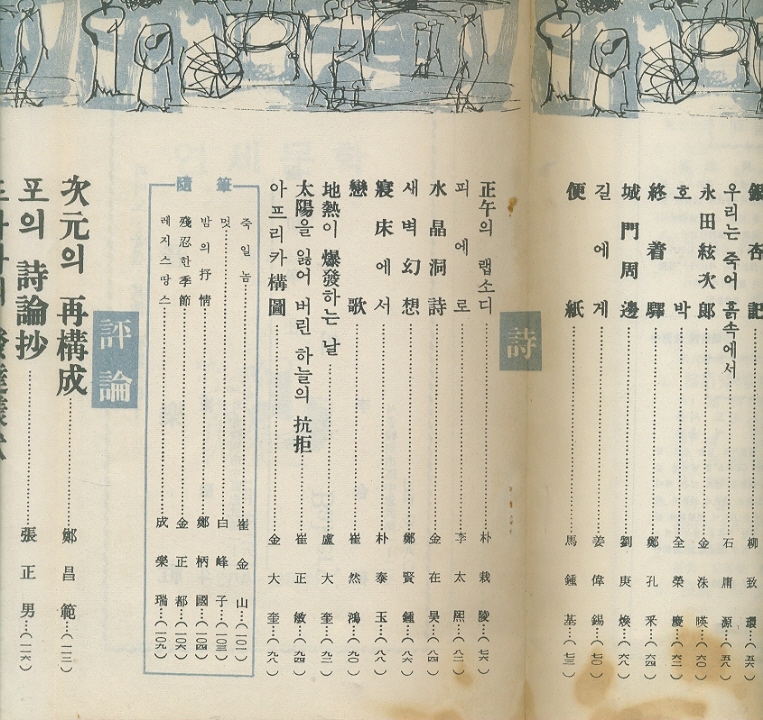 銀杏記……柳致環…(五六)
우리는 죽어 흙속에서……石庸源…(五八)
永田絃次郎……金洙暎…(六〇)
호박……全榮慶…(六二)
終着驛……鄭孔采…(六四)
城門周邊……劉庚煥…(六八)
길에게……姜偉錫…(七〇)
便紙……馬鍾基…(七三)
詩
正午의 랩소디……朴栽陵…(七六)
피에로……李太熙…(八二)
水晶洞詩……金在昊…(八四)
새벽幻想……鄭賢鍾…(八六)
寢床에서……朴泰玉…(八八)
戀歌……崔然鴻…(九〇)
地熱이 爆發하는 날……盧大奎…(九二)
太陽을 잃어 버린 하늘의 抗拒……崔正敏…(九四)
아프리카構圖……金大奎…(九八)
隨筆
죽일놈……崔金山…(一〇一)
멋……白峰子…(一〇三)
밤의 抒情……鄭柄國…(一〇四)
殘忍한季節……金正都…(一〇六)
레지스땅스……成樂瑞…(一〇九)
評論
次元의 再構成……鄭昌範…(一一二)
포의 詩論抄……張正男…(一二六)